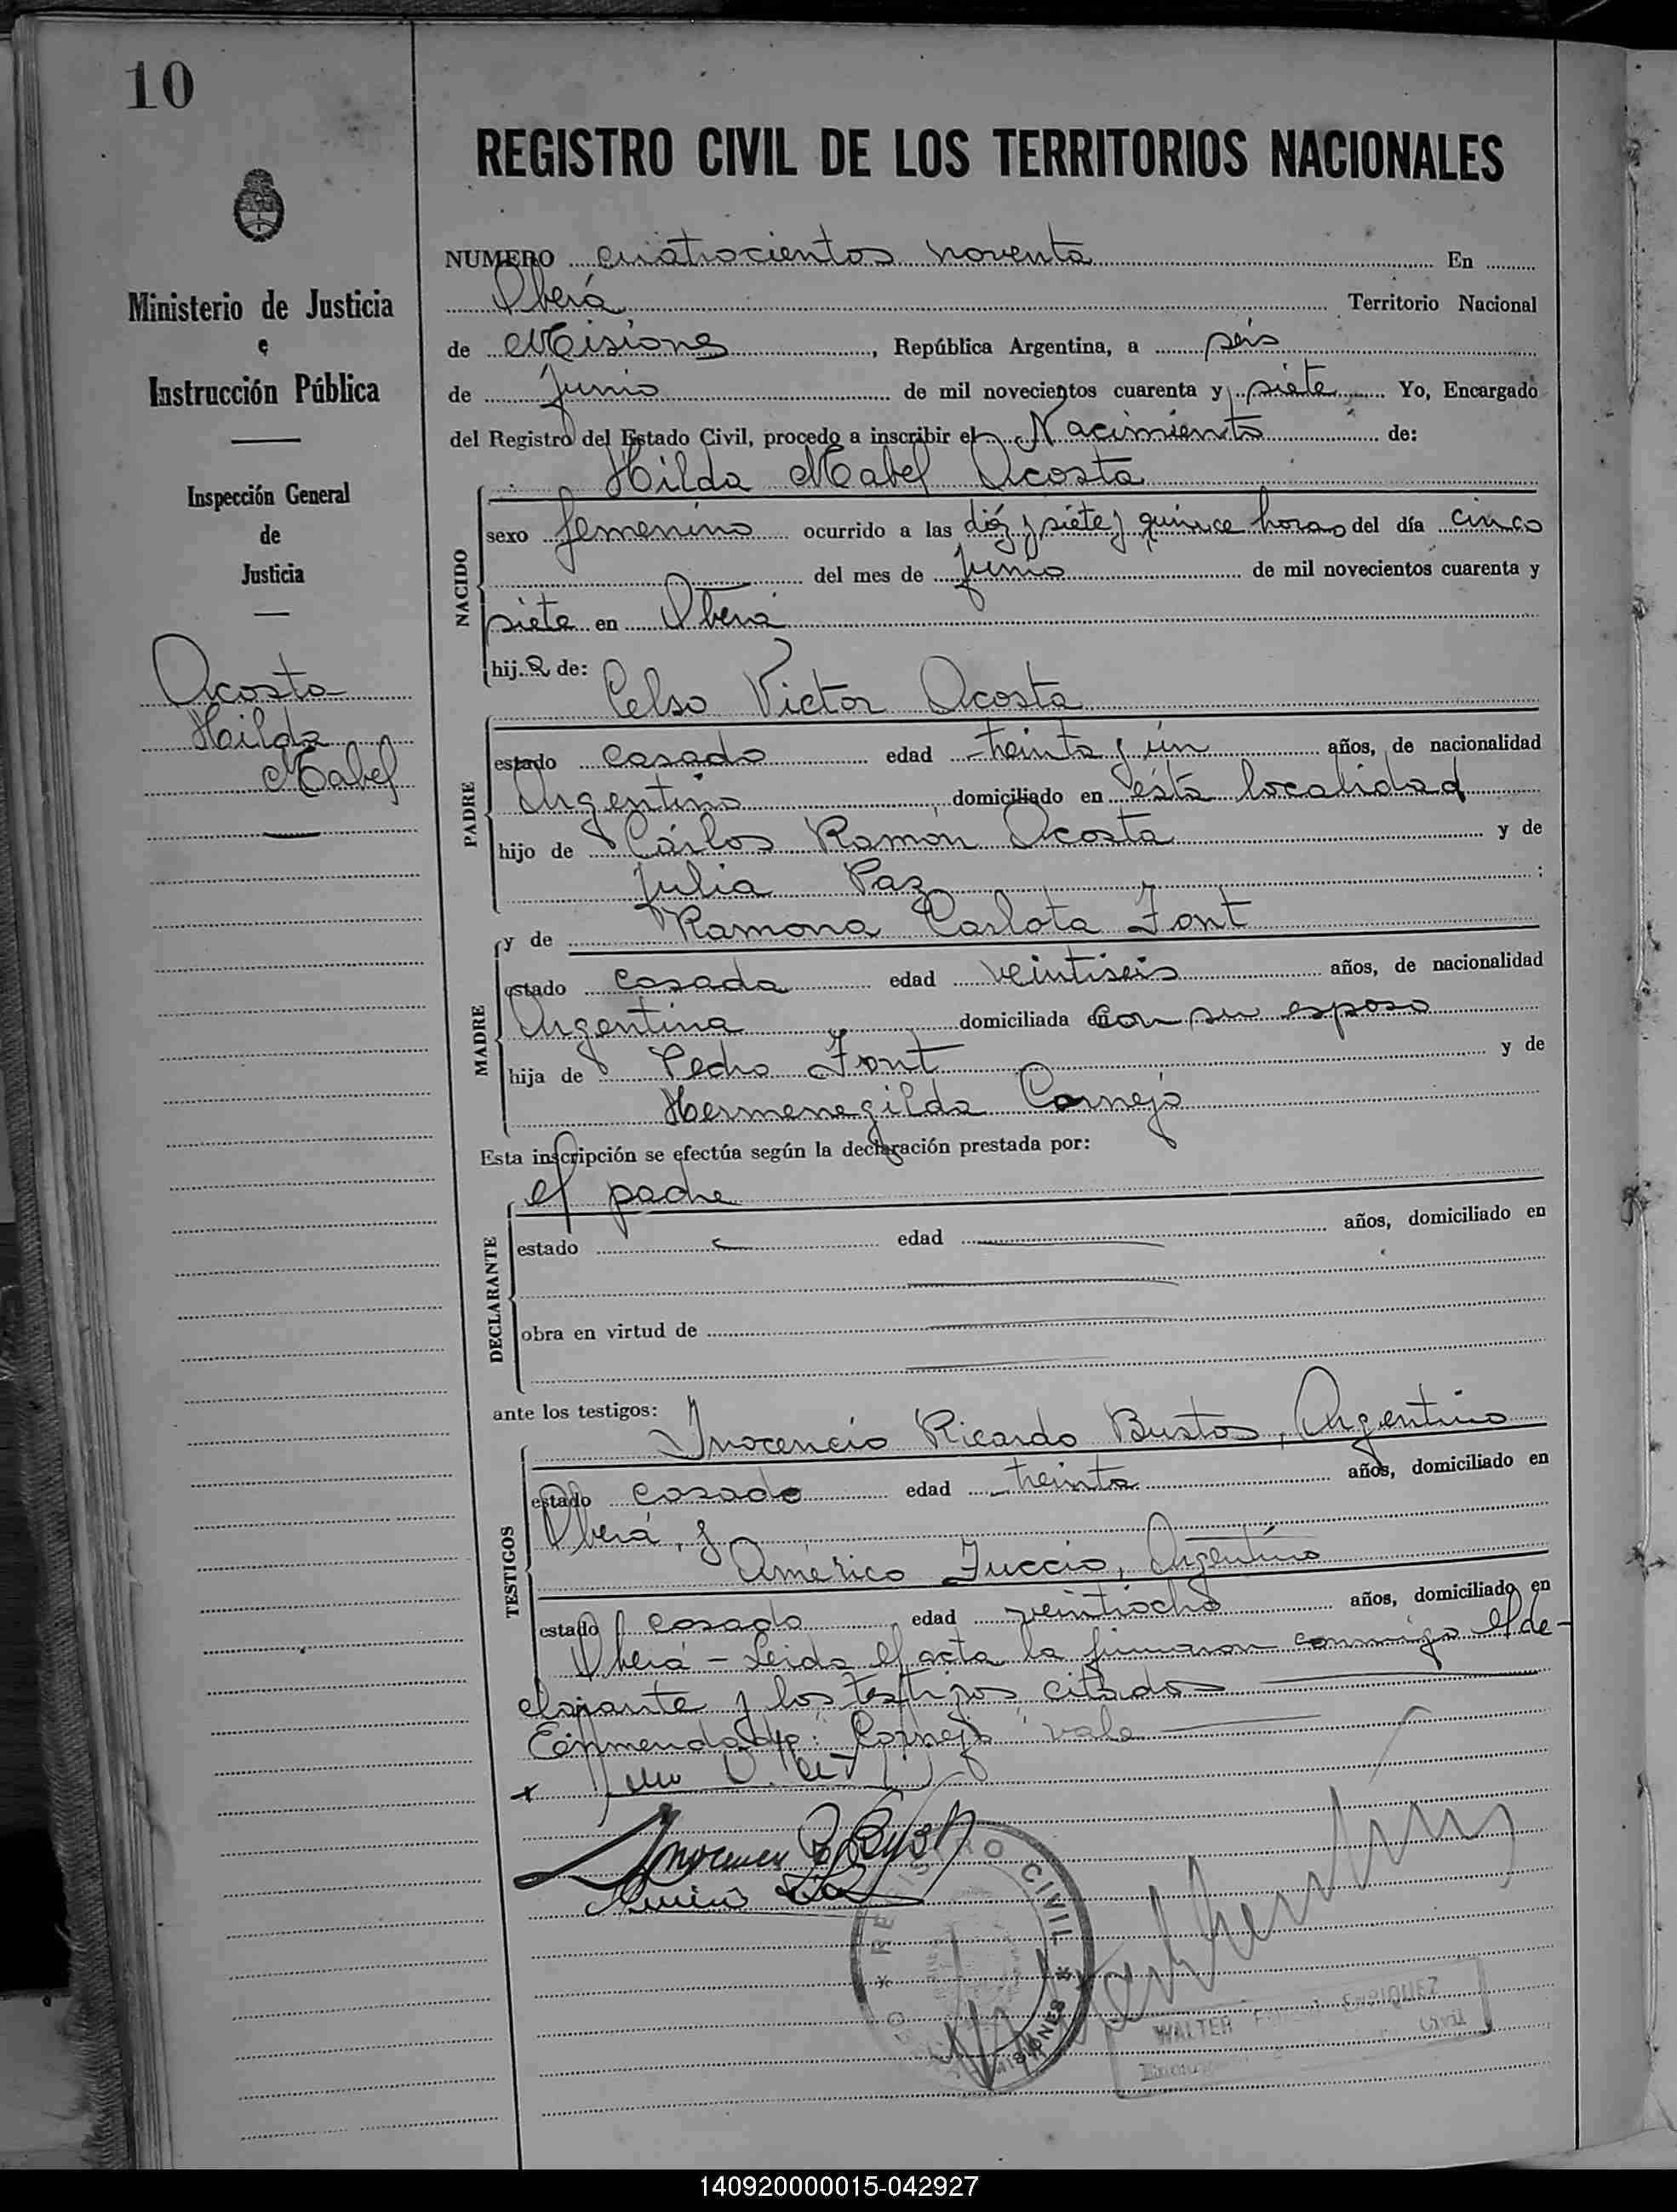 10
REGISTRO CIVIL DE LOS TERRITORIOS NACIONALES
Ministerio de Justicia
e
Instrucción Pública
Inspección General
de
Justicia
Acosta
Hilda
Mabel
NUMERO cuatrocientos noventa En
Oberá Territorio Nacional
de Misiones, República Argentina, a seis
de Junio de mil novecientos cuarenta y siete Yo, Encargado
del Registro del Estado Civil, procedo a inscribir el Nacimiento de:
Hilda Mabel Acosta
NACIDO
sexo femenino ocurrido a las diéz y siete y quince horas del día cinco
del mes de Junio de mil novecientos cuarenta y
siete en Oberá
hij.a de:
Celso Victor Acosta
PADRE
estado casado edad treinta y ún años, de nacionalidad
Argentino, domiciliado en ésta localidad
hijo de Cárlos Ramón Acosta y de
Julia Paz :
y de Ramona Carlota Font
MADRE
estado casada edad veintiseis años, de nacionalidad
Argentina domiciliada en con su esposo
hija de Pedro Font y de
Hermenegilda Cornejo
Esta inscripción se efectúa según la declaración prestada por:
el padre
DECLARANTE
estado edad años, domiciliado en
obra en virtud de
ante los testigos:
Inocencio Ricardo Bustos, Argentino
TESTIGOS
estado casado edad treinta años, domiciliado en
Oberá, y
Américo Fuccio, Argentino
estado casado edad veintiocho años, domiciliado en
Oberá - Leida el acta la firmaron conmigo el de-
clarante y los testigos citados
Enmendado: "Cornejo" vale
REGISTRO CIVIL
MISIONES
WALTER ENRIQUEZ
Civil
140920000015-042927